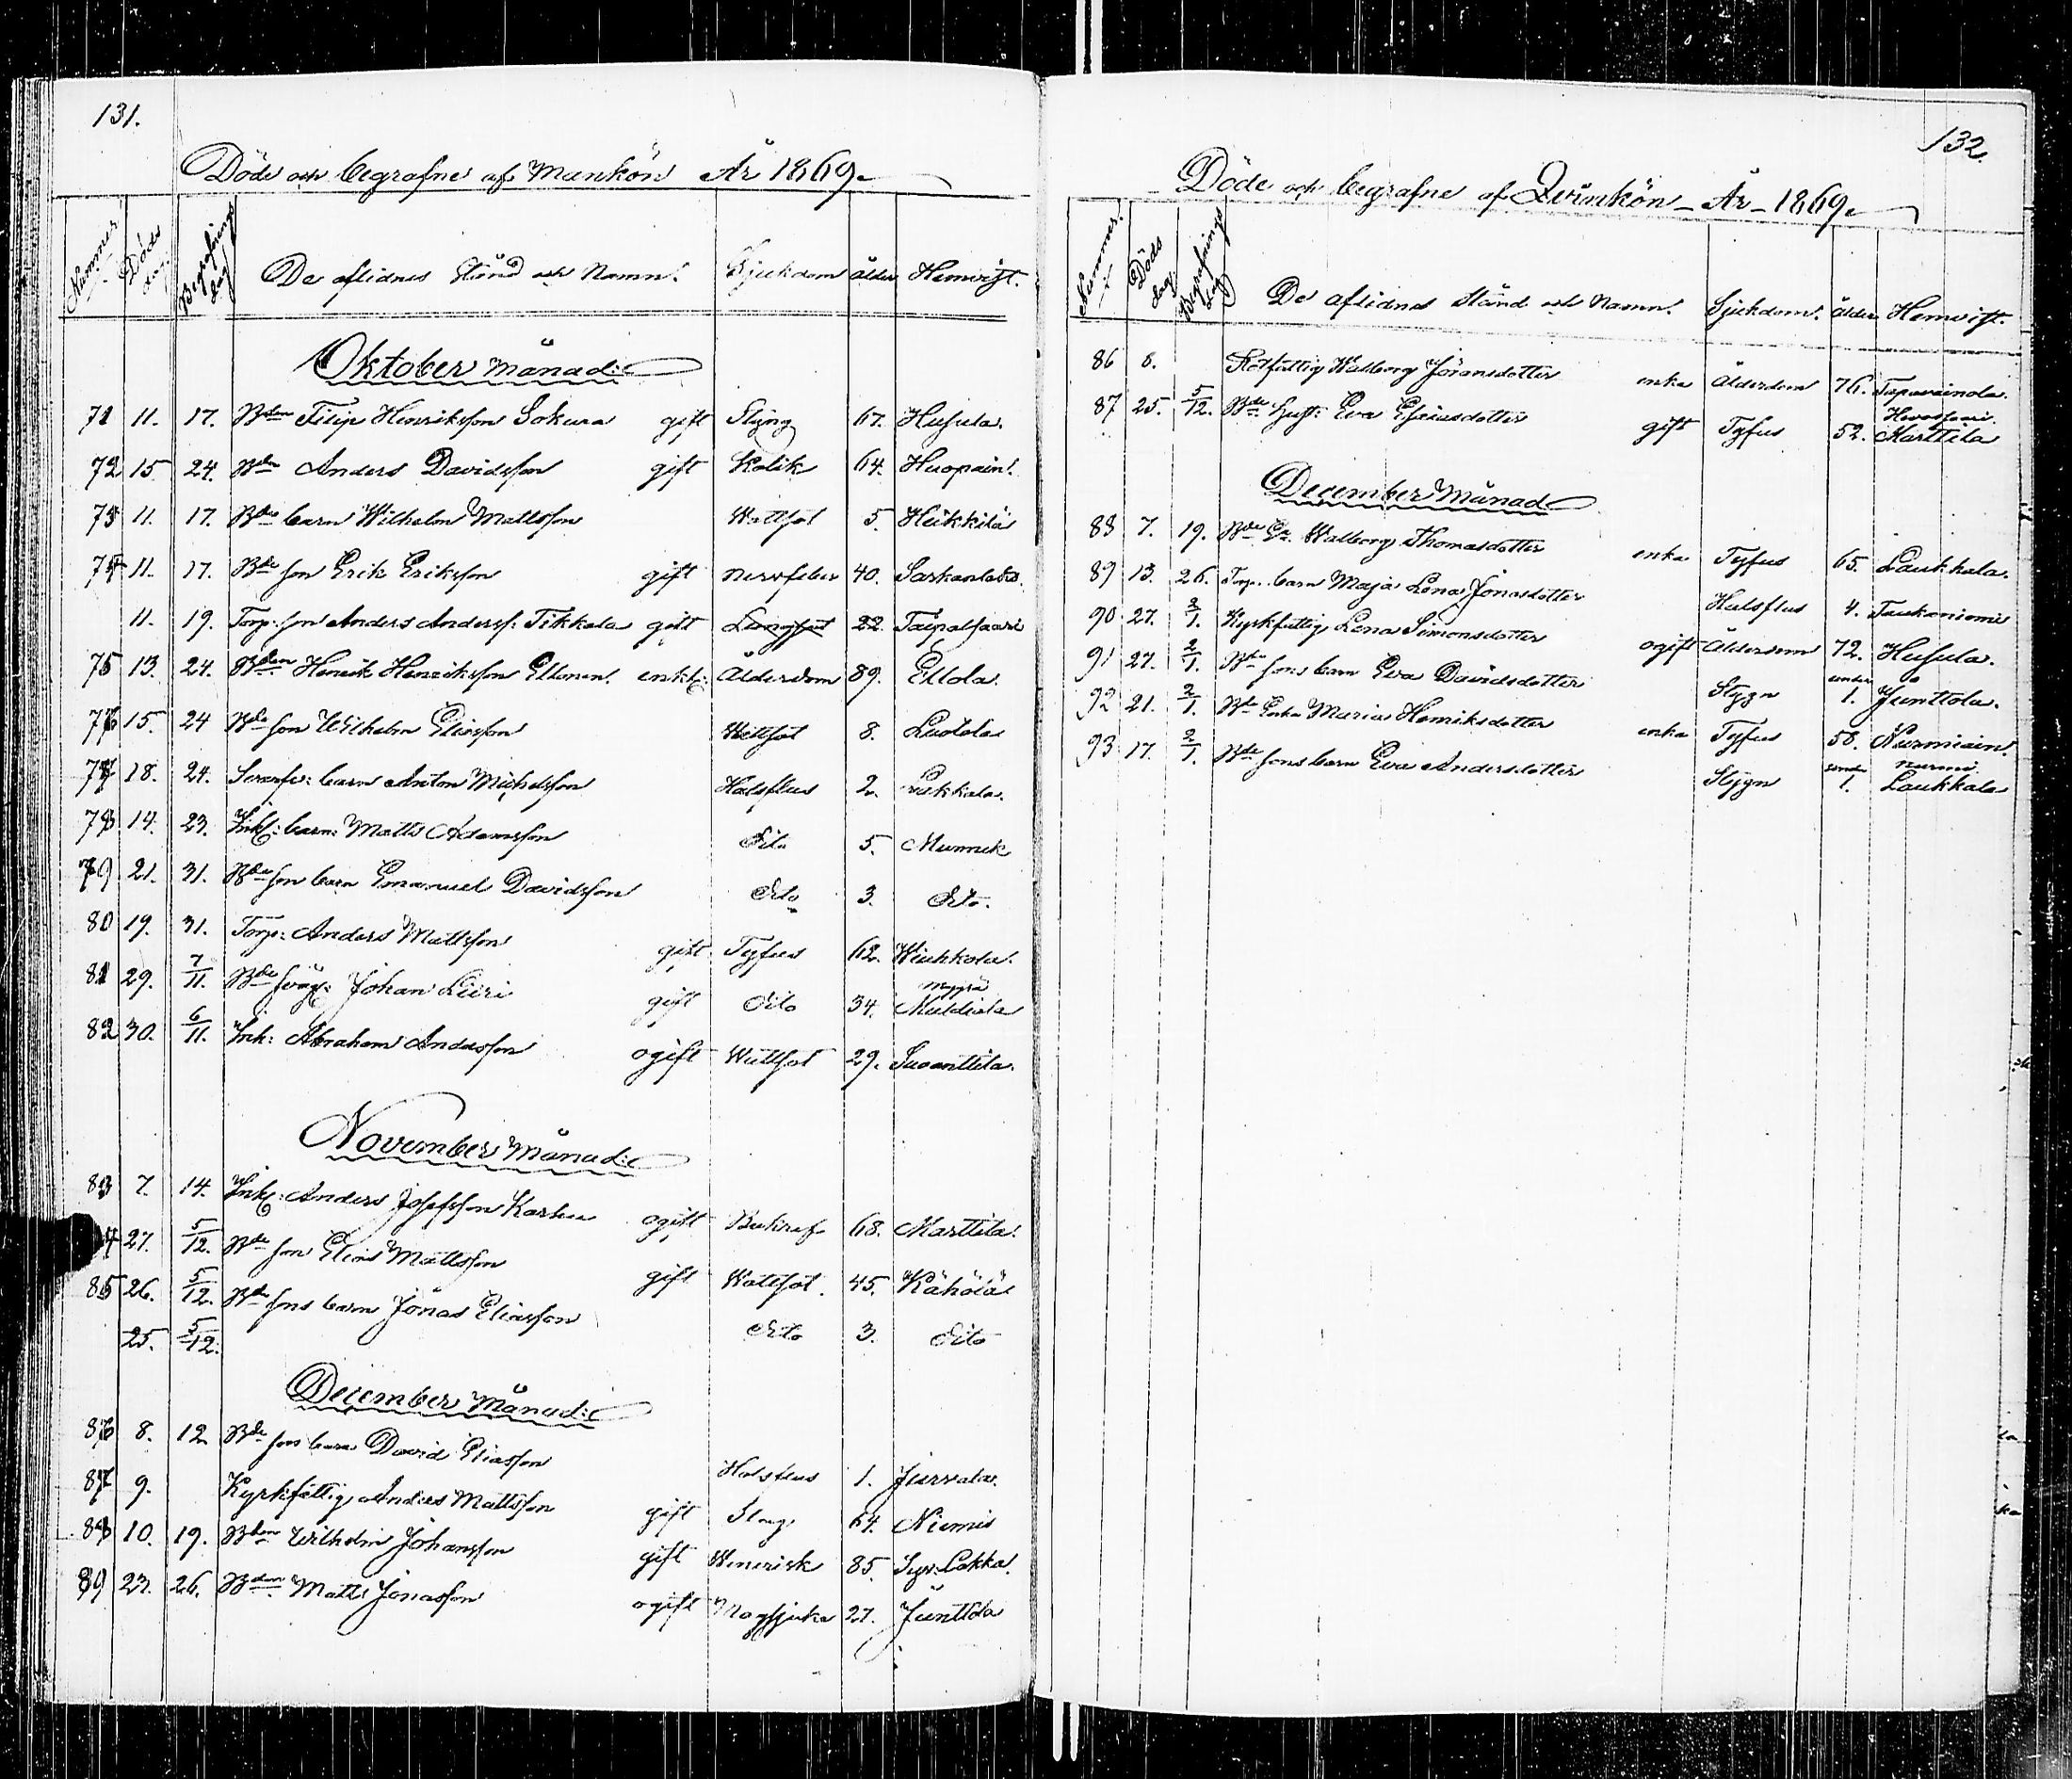 131.
Döde och begrafne af Mankön År 1869.
Nummer Döds dag. Begrafnings dag De aflidnes stånd och Namn. Sjukdom ålder Hemvist.
Oktober månad:
71 11. 17. Bden Filip Henriksson Sokura gift Styng 67. Husula.
72 15 24. Bden Anders Davidsson gift Kolik 64. Huopain.
73 11. 17. Bde barn Wilhelm Mattsson Wattsot 5. Heikkilä
74 11. 17. Bde son Erik Eriksson gift nervfeber 40.
11. 19. Torp: son Anders Anderss: Tikkala gift Lungsot 22 Taipalsaari
75 13. 24. Bden Henrik Henriksson Ellonen. enkl: Ålderdom 89. Ellola.
76 15. 24 Bde son Wilhelm Eliasson Wattsot 8.
77 18. 24. barn Anton Michelsson Halsflus 2.
78 14. 23. Inh: barn: Matts Adamsson Dito 5.
79 21. 31. Bde son barn Emanuel Davidsson Dito 3. Dito.
80 19. 31. Torp: Anders Mattsson gift. Tyfus 62.
81 29. 7/11. Bde svåg: Johan Liiri gift Dito 34.
82 30. 6/11. Inh: Abraham Andersson ogift Wattsot 29. Suoanttila.
November månad:
83 7. 14. Inh: Anders Josefsson ogift 68. Marttila.
4 27. 5/12. Bde son Elias Mattsson gift Wattsot. 45. Kähölä
85 26. 5/12. Bde sons barn Jonas Eliasson Dito 3. Dito
25. 5/12.
December månad:
86 8. 12 Bde sons barn David Eliasson Halsflus 1. Jurvala.
87 9. Kyrkfattig Anders Mattsson gift 64. Niemis
88 10. 19. Bden Wilhelm Johansson gift 85.
89 23. 26. Bden Matts Jonasson ogift Magsjuka 27. Junttola
132.
Döde och begrafne af Qvinkön År 1869.
Nummer. Döds dag Begrafnings dag De aflidnes stånd och Namn. Sjukdom. ålder Hemvist.
86 8. Rotfattig Walborg Jöransdotter enka Ålderdom 76. Tapavainola.
87 25. 5/12. Bde hust: Eva Esaiasdotter gift Tyfus 52. Marttila
December Månad
88 7. 19. Bde Walborg Thomasdotter enka Tyfus 65. Laukkala.
89 13. 26. Torp. barn Maja Lena Jonasdotter Halsflus 4.
90 27. 2/1. Kyrkfattig Lena Simonsdotter ogift Ålderdom 72. Husula.
91 27. 2/1. Bde sons barn Eva Davidsdotter Stygn under 1. Junttola.
92 21. 2/1. Bde Enka Maria Henriksdotter enka Tyfus 58. Nurmiain.
93 17. 2/1. Bde sons barn Eva Andersdotter Stygn under 1. nurmi Laukkala